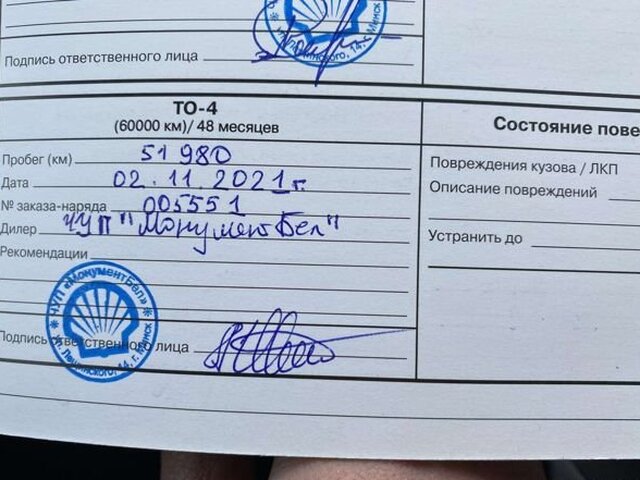 Подпись ответственного лица
14, г. Минск
ТО-4
(60000 км)/ 48 месяцев
Пробег (км) 51 980
Дата 02.11.2021г.
№ заказа-наряда 005551
Дилер ЧУП "МонументБел"
Рекомендации
ЧУП «МонументБел»
14, г. Минск
Подпись ответственного лица
Состояние пове
Повреждения кузова / ЛКП
Описание повреждений
Устранить до